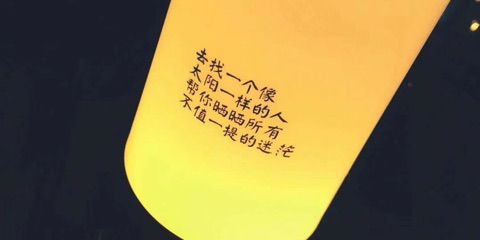 去找一个像
太阳一样的人
帮你晒晒所有
不值一提的迷茫